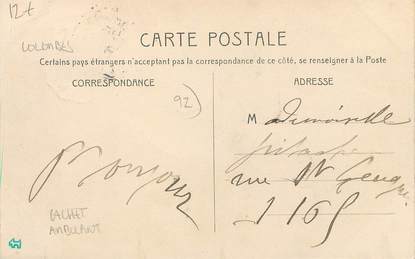 12+
COLOMBES
CARTE POSTALE
Certains pays étrangers n'acceptant pas la correspondance de ce côté, se renseigner à la Poste
CORRESPONDANCE
ADRESSE
92)
Mademoiselle
rue St
Bonjour
1165
CACHET
AMBULANT